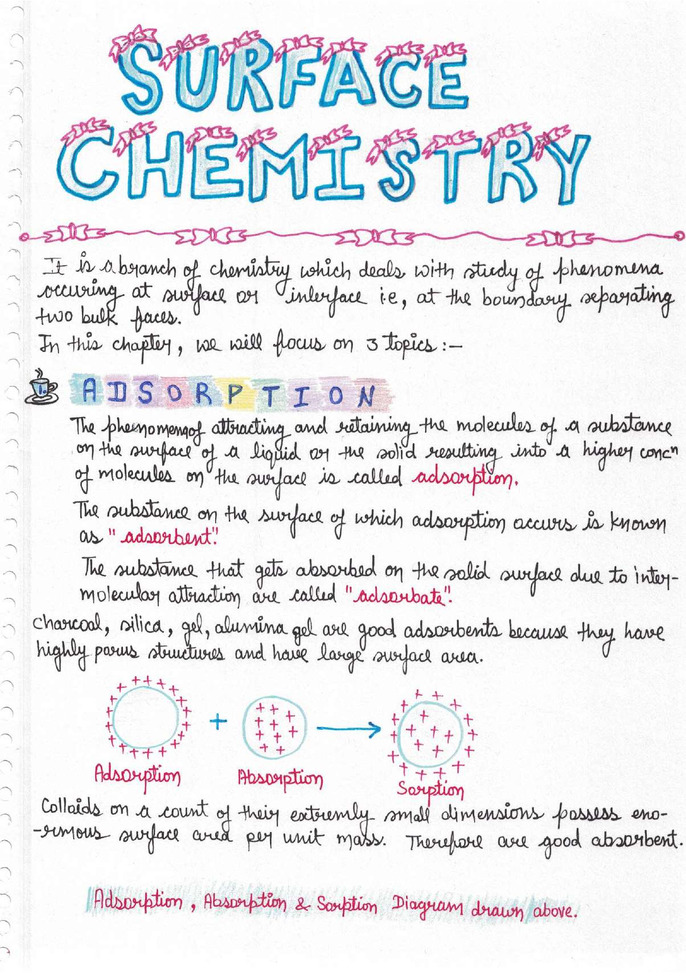 SURFACE
CHEMISTRY
It is a branch of chemistry which deals with study of phenomena
occuring at surface or interface i.e, at the boundary separating
two bulk faces.
In this chapter, we will focus on 3 topics :-
1. ADSORPTION
The phenomeng of attracting and retaining the molecules of a substance
on the surface of a liquid or the solid resulting into a higher concⁿ
of molecules on the surface is called adsorption.
The substance on the surface of which adsorption occurs is known
as "adsorbent".
The substance that gets absorbed on the solid surface due to inter-
molecular attraction are called "adsorbate".
Charcoal, silica, gel, alumina gel are good adsorbents because they have
highly porus structures and have large surface area.
+ →
Adsorption Absorption Sorption
Colloids on a count of their extremly small dimensions possess eno-
-ormous surface area per unit mass. Therefore are good absorbent.
Adsorption, Absorption & Sorption Diagram drawn above.